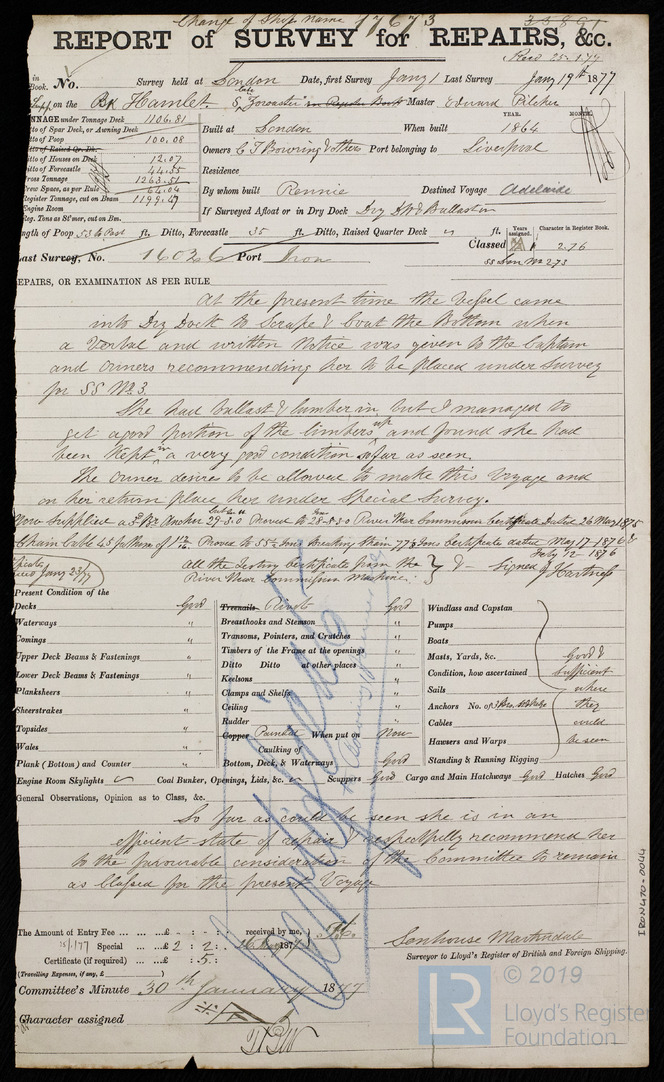 Change of Ship's Name 17673
33891
REPORT of SURVEY for REPAIRS, &c.
Recd 25.1.77
in Book. No. Survey held at London Date, first Survey Jany 1 Last Survey Jany 19th 1877
on the Bk Hamlet late "Forcaster" in Register Book Master Edward Pilcher
TONNAGE under Tonnage Deck 1106.81
Ditto of Spar Deck, or Awning Deck
Ditto of Poop 100.08
Ditto of Raised Qr. Dk.
Ditto of Houses on Deck 12.07
Ditto of Forecastle 44.55
Gross Tonnage 1263.51
Crew Space, as per Rule 64.04
Register Tonnage, cut on Beam 1199.47
Engine Room
Reg. Tons as St'mer, cut on Bm.
Built at London When built YEAR. 1864 MONTH.
Owners C T Bowring & others Port belonging to Liverpool
Residence
By whom built Rennie Destined Voyage Adelaide
If Surveyed Afloat or in Dry Dock Dry Dk & Ballast in
Length of Poop 53 ft. Ditto, Forecastle 35 ft. Ditto, Raised Quarter Deck ft.
Years assigned. Character in Register Book.
Classed A 2.76
SS Lon No 2 73
Last Survey, No. 16026 Port Iron
REPAIRS, OR EXAMINATION AS PER RULE
At the present time the Vessel came
into Dry Dock to Scrape & Coat the Bottom when
a Verbal and written Notice was given to the Captain
and Owners recommending her to be placed under Survey
for SS No 3.
She had ballast & lumber in but I managed to
get a good portion of the limbers up and found she had
been kept in a very good condition so far as seen.
The Owner desires to be allowed to make this Voyage and
on her return place her under Special Survey.
Now Supplied a Br Anchor 29-3.0 Proved to 28 River Wear Commission Certificate dated 26 May 1875
Chain Cable 45 fathoms of Proved to 55 Tons Breaking Strain 77 Tons Certificate dated May 17 1876 &
July 12 1876
Jany 23/77
all the testing Certificates from the
River Wear Commission Machine. } & Signed J Hartness
Present Condition of the
Decks Good
Waterways "
Comings "
Upper Deck Beams & Fastenings "
Lower Deck Beams & Fastenings "
Planksheers "
Sheerstrakes "
Topsides "
Wales "
Plank (Bottom) and Counter "
Treenails Rivets Good
Breasthooks and Stemson "
Transoms, Pointers, and Crutches "
Timbers of the Frame at the openings "
Ditto Ditto at other places "
Keelsons "
Clamps and Shelfs "
Ceiling "
Rudder "
Copper Painted When put on Now
Caulking of
Bottom, Deck, & Waterways Good
Windlass and Capstan
Pumps
Boats
Masts, Yards, &c.
Condition, how ascertained
Sails
Anchors No. of
Cables
Hawsers and Warps
Standing & Running Rigging
Good &
sufficient
where
they
could
be seen
Engine Room Skylights Coal Bunker, Openings, Lids, &c. Scuppers Good Cargo and Main Hatchways Good Hatches Good
General Observations, Opinion as to Class, &c.
So far as could be seen she is in an
efficient state of repair & respectfully recommend her
to the favourable consideration of the Committee to remain
as Classed for the present Voyage
The Amount of Entry Fee ... ... ...£ - : - : received by me,
25/1/77 Special ... ...£ 2 : 2 : 187
Certificate (if required) ... ...£ : 5 :
(Travelling Expenses, if any, £ )
Senhouse Martindale
Surveyor to Lloyd's Register of British and Foreign Shipping.
Committee's Minute 30th January 1877
Character assigned
IRON470-0044
LR
© 2019
Lloyd's Register
Foundation